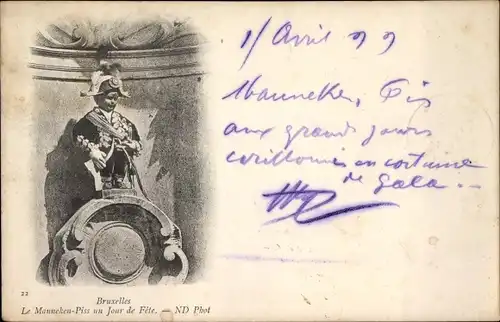 1/ Avril 99
Manneken, Pis
aux grands jours
carillonnés en costume
de gala...
22
Bruxelles
Le Manneken-Piss un Jour de Fête. — ND Phot